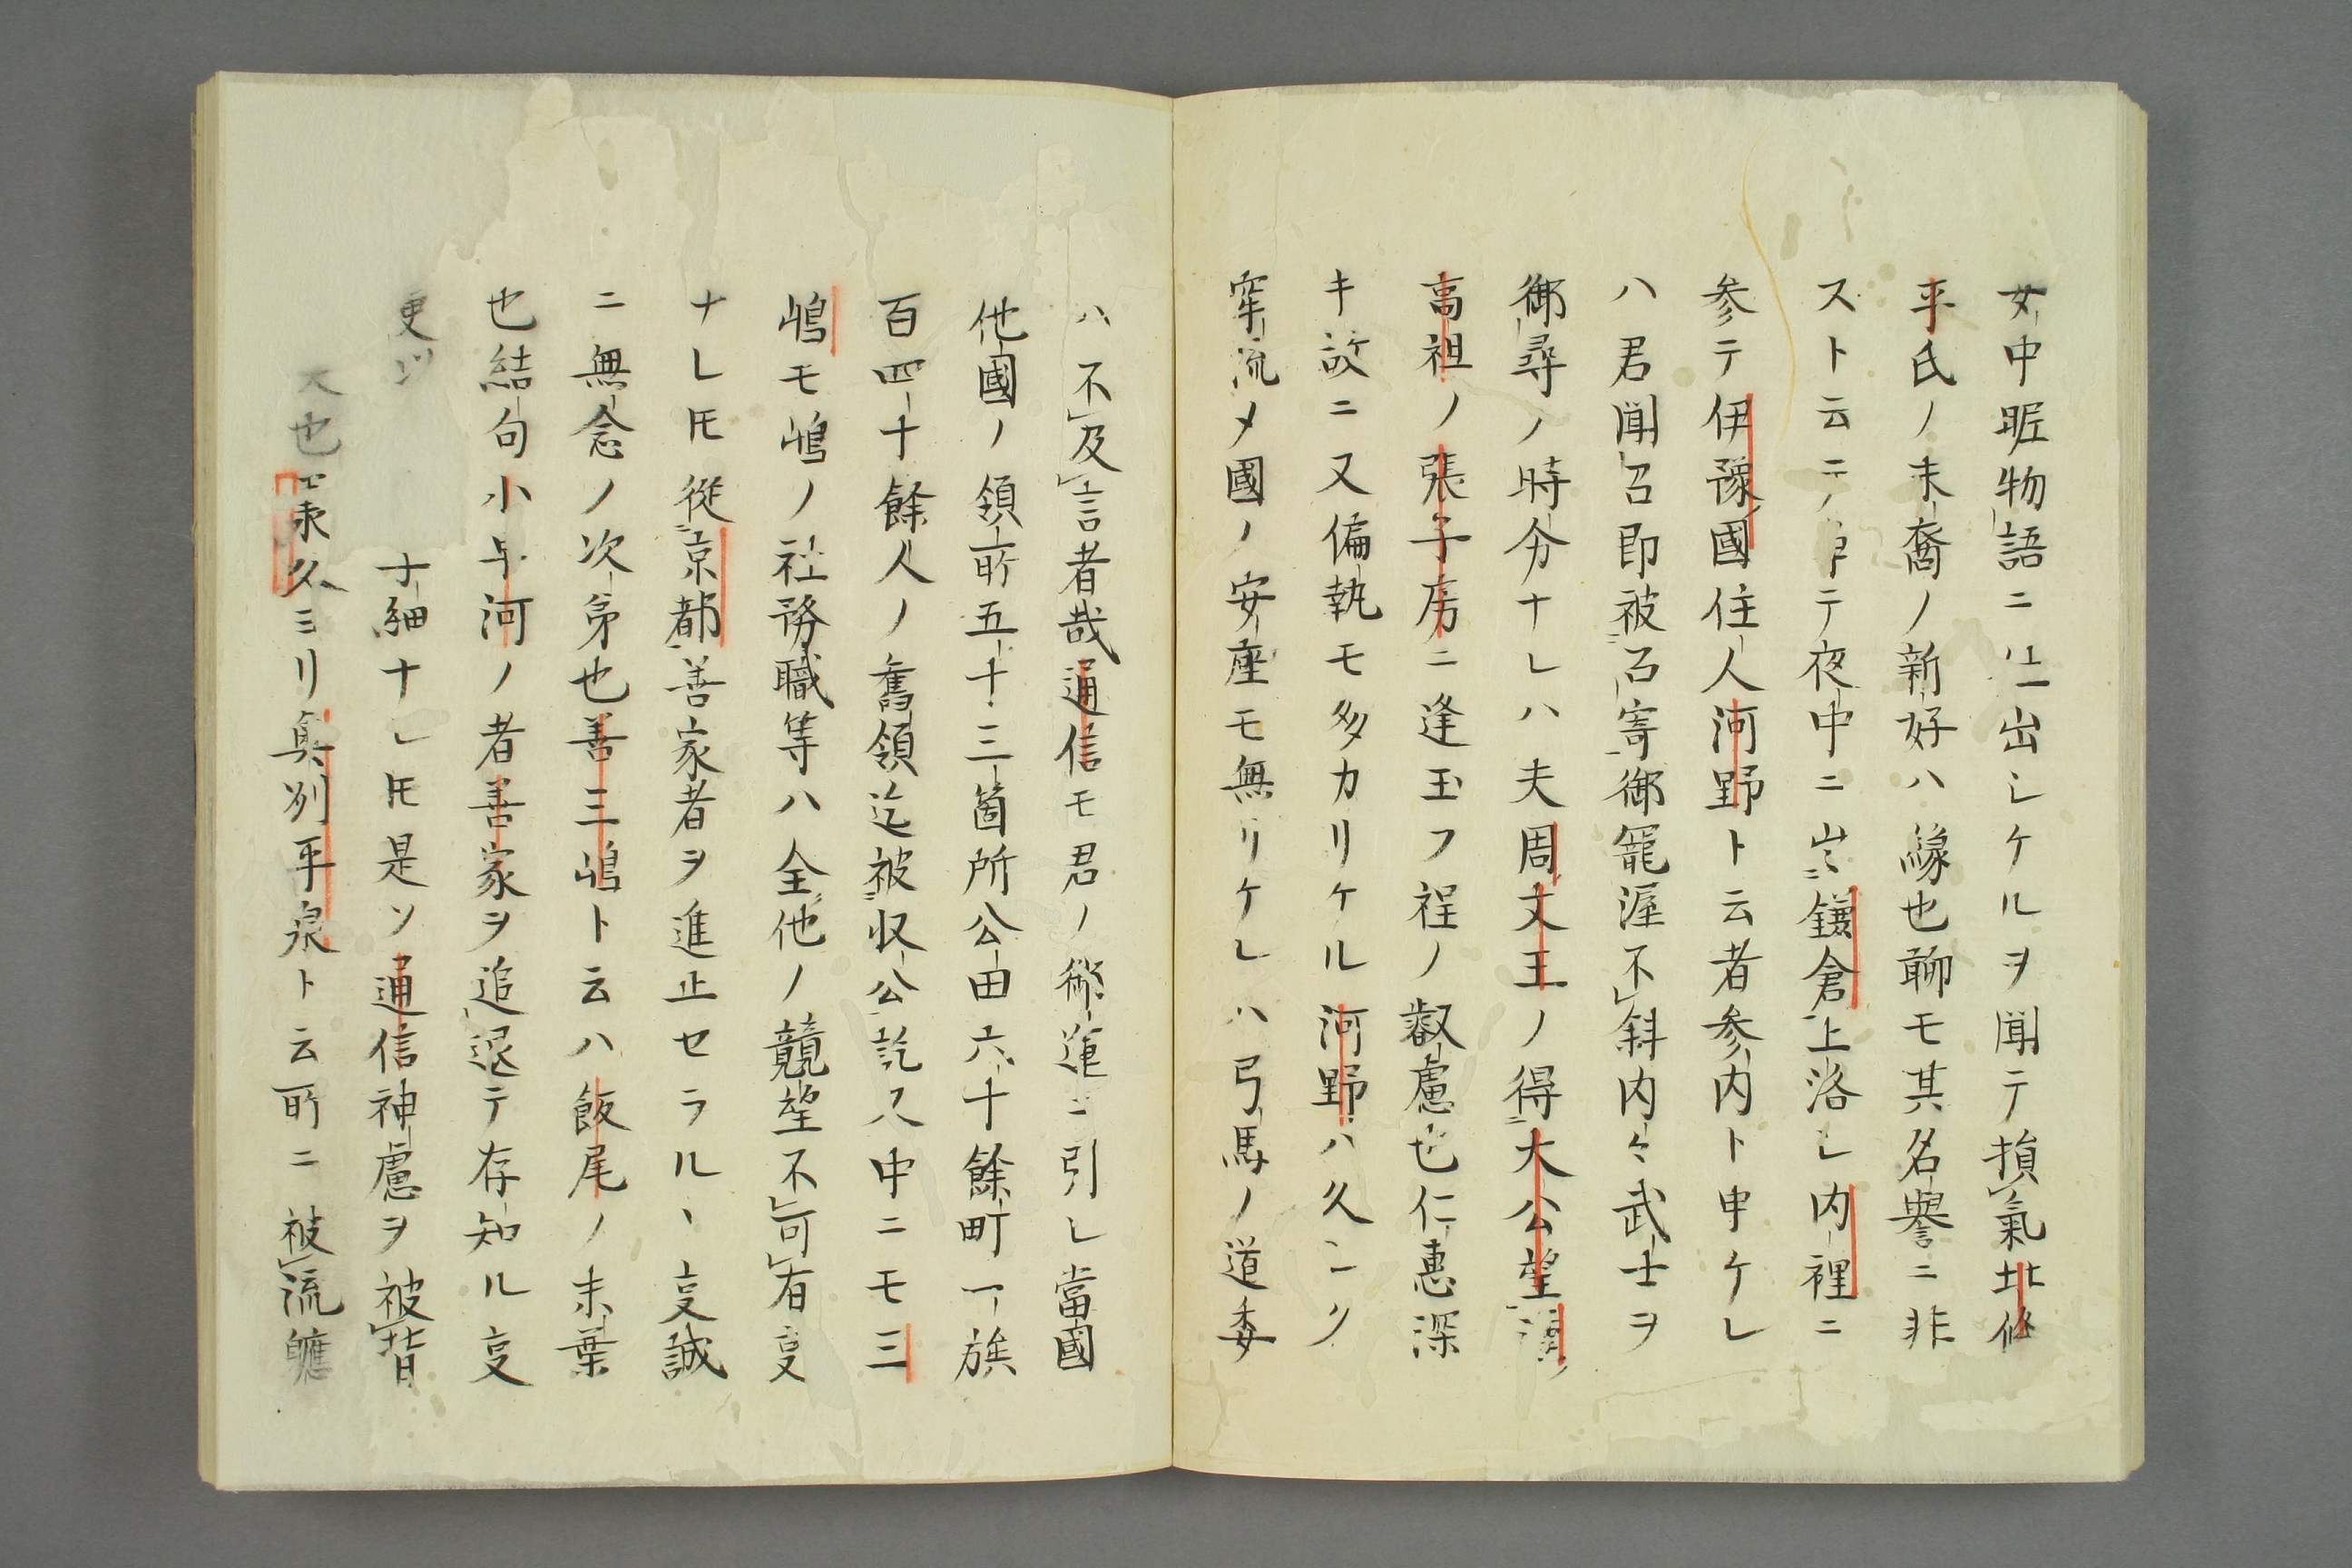 女中昵物語ニ仕出シケルヲ聞テ損氣北條
平氏ノ末裔ノ新好ハ緣也聊モ其名譽ニ非
ストテ夜中ニ出鎌倉上洛シ内裡ニ
参テ伊豫國住人河野ト云者参内ト申ケレ
ハ君聞召即被召寄御寵渥不斜内々武士ヲ
御尋ノ時分ナレハ夫周文王ノ得大公望漢
高祖ノ張子房ニ逢玉フ程ノ叡慮也仁惠深
キ故ニ又偏執モ多カリケル河野ハ久シク
牢流メ國ノ安座モ無リケレハ弓馬ノ道委
ハ不及言者哉通信モ君ノ御運ニ引レ當國
他國ノ領所五十三箇所公田六十餘町一族
百四十餘人ノ舊領迄被収公訖又中ニモ三
嶋モ嶋ノ社務職等ハ全他ノ競望不可有叓
ナレ𪜈從京都善家者ヲ進止セラルヽ叓誠
ニ無念ノ次第也善三嶋ト云ハ飯尾ノ末葉
也結句小与河ノ者善家ヲ追退テ存知ル叓
更ニ
子細ナレ𪜈是ソ通信神慮ヲ被背
也承久三リ奥州平泉ト云所ニ被流